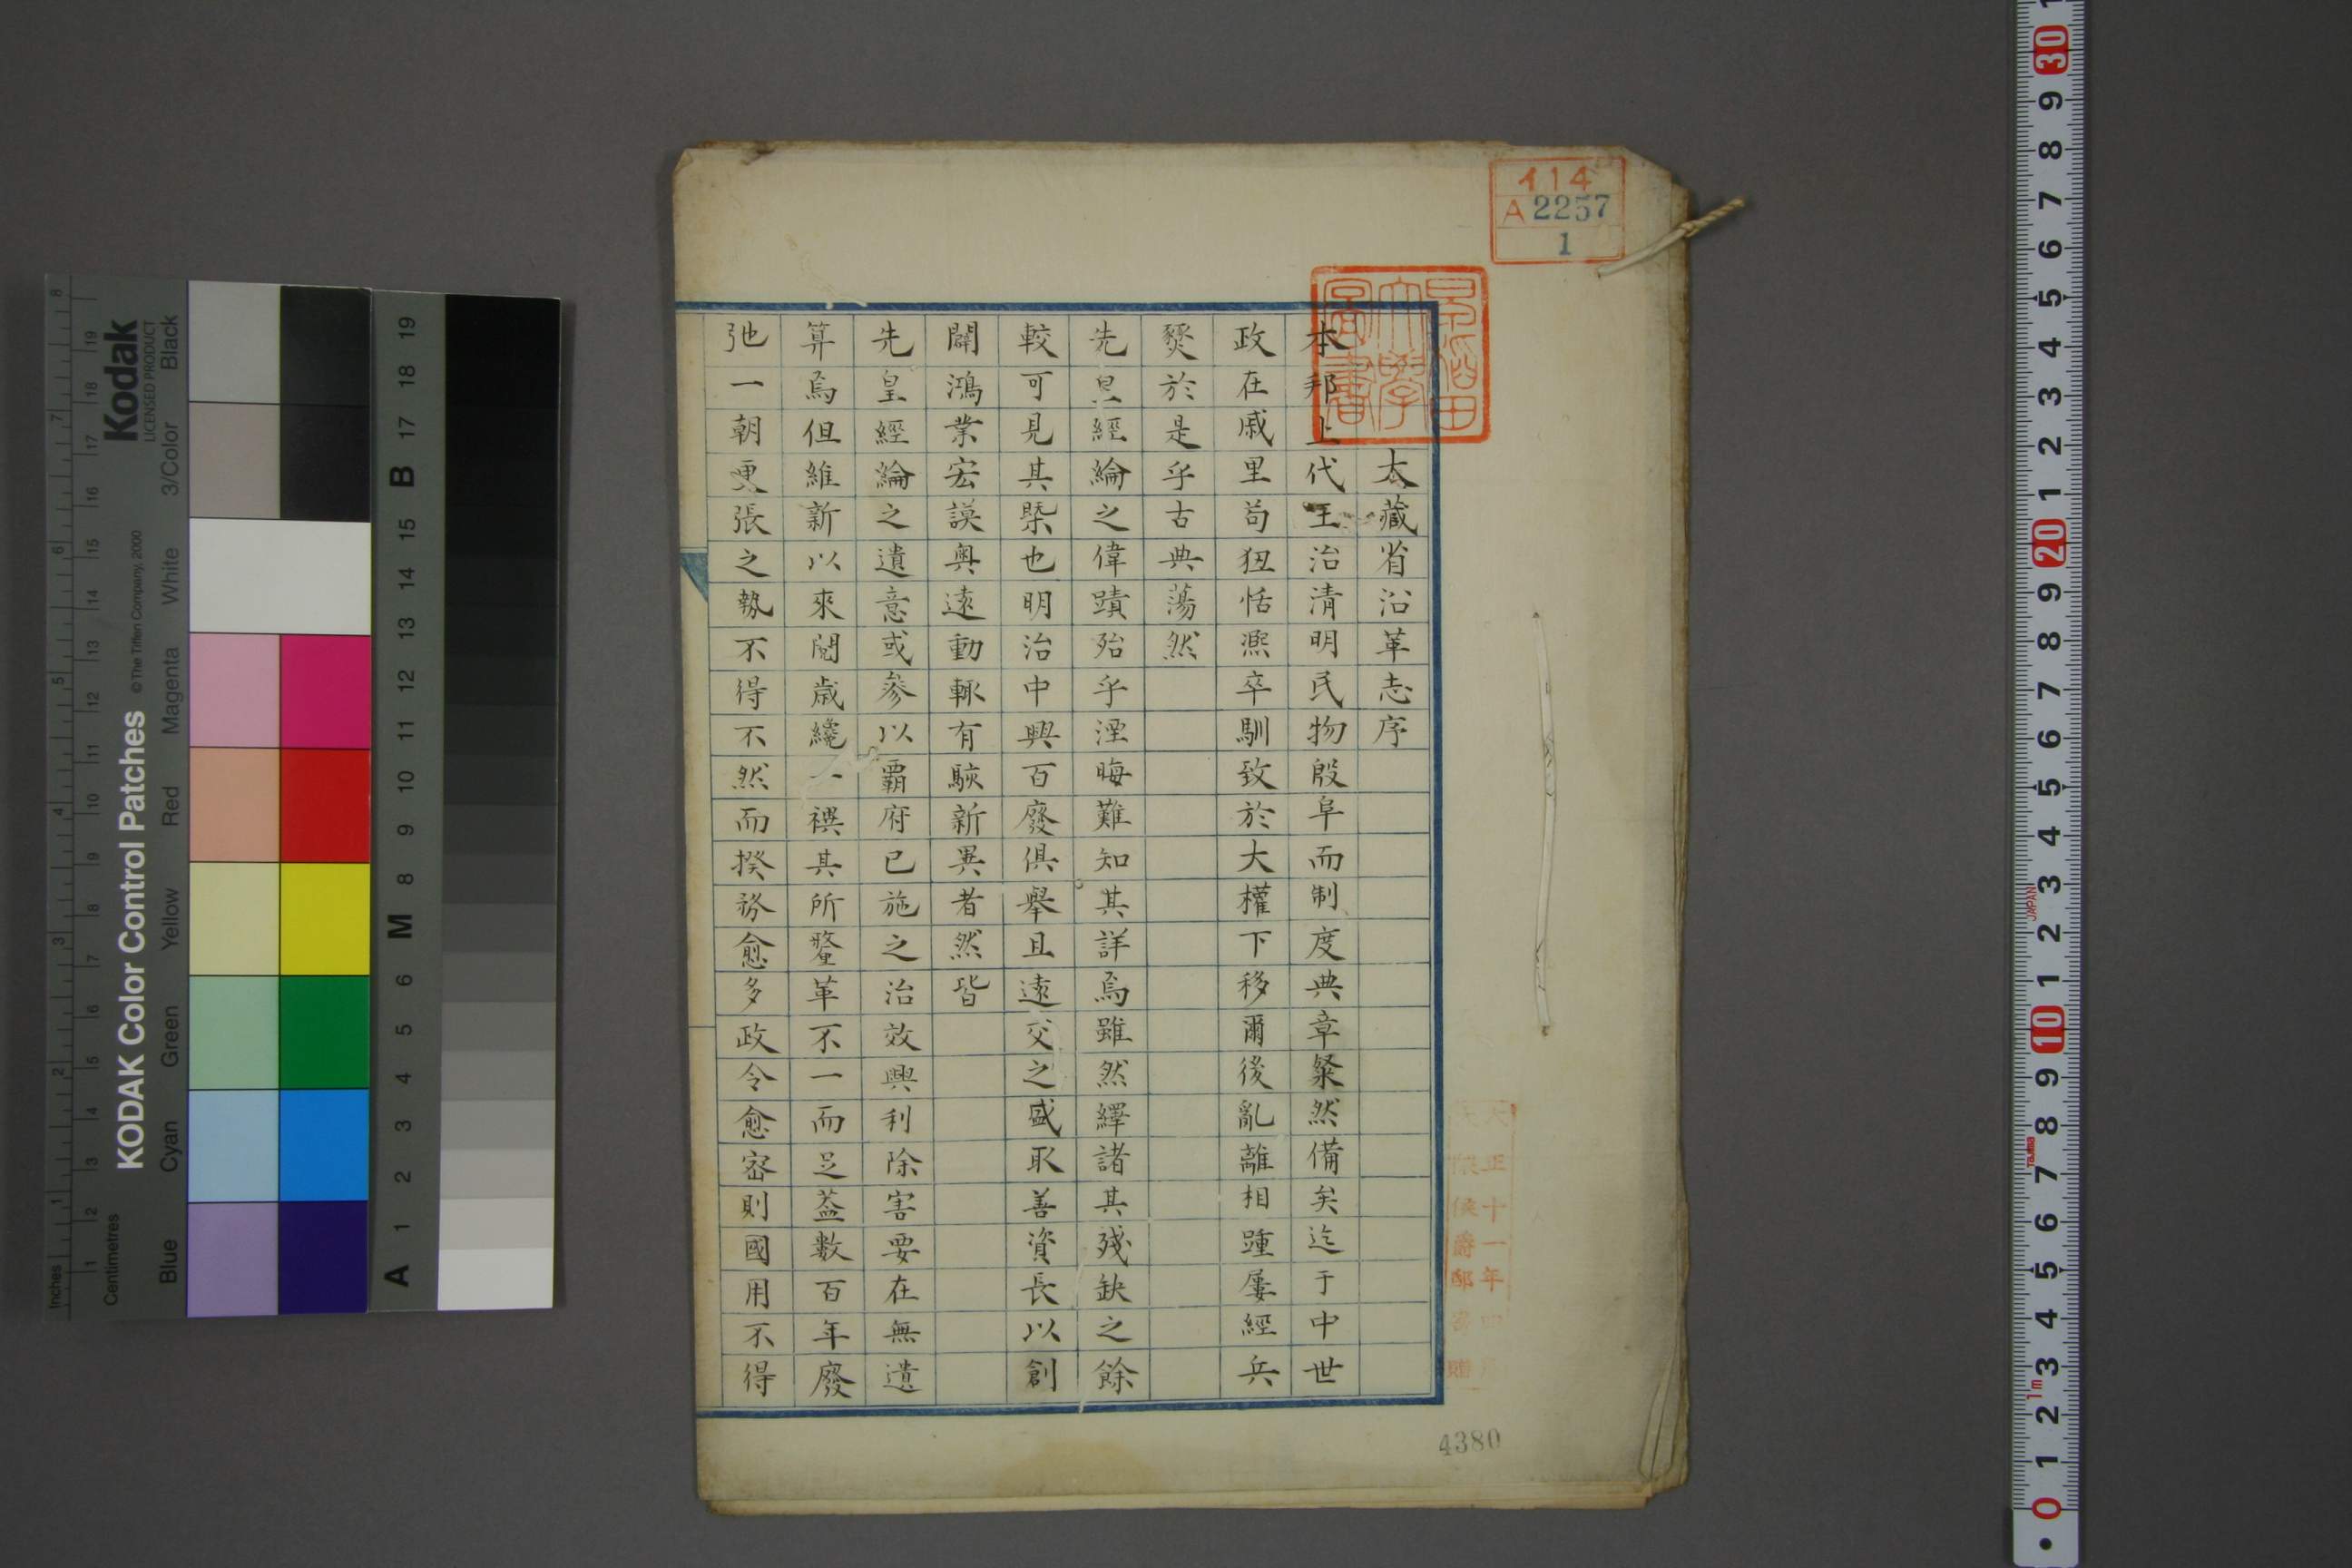 大藏省沿革志序
本邦上代王治淸明民物殷阜而制度典章粲然備矣迄于中世
政在戚里苟狃恬凞卒馴致於大權下移爾後亂離相踵屢經兵
燹於是乎古典蕩然
先皇經綸之偉蹟殆乎湮晦難知其詳焉雖然繹諸其殘缺之餘
較可見其槩也明治中興百廢俱擧且遠交之盛取善資長以創
闢鴻業宏謨奧遠動輙有駭新異者然皆
先皇經綸之遺意或參以覇府已施之治效興利除害要在無遺
算焉但維新以來閱歲纔一禩其所釐革不一而足蓋數百年廢
弛一朝更張之勢不得不然而揆務愈多政令愈密則國用不得
早稻田
大學
圖書
414
A2257
1
4380
KODAK Color Control Patches
© The Tiffen Company, 2000
Kodak
LICENSED PRODUCT
Inches
Centimetres
Blue Cyan Green Yellow Red Magenta White 3/Color Black
A 1 2 3 4 5 6 M 8 9 10 11 12 13 14 15 B 17 18 19
JAPAN
Tajima
1m